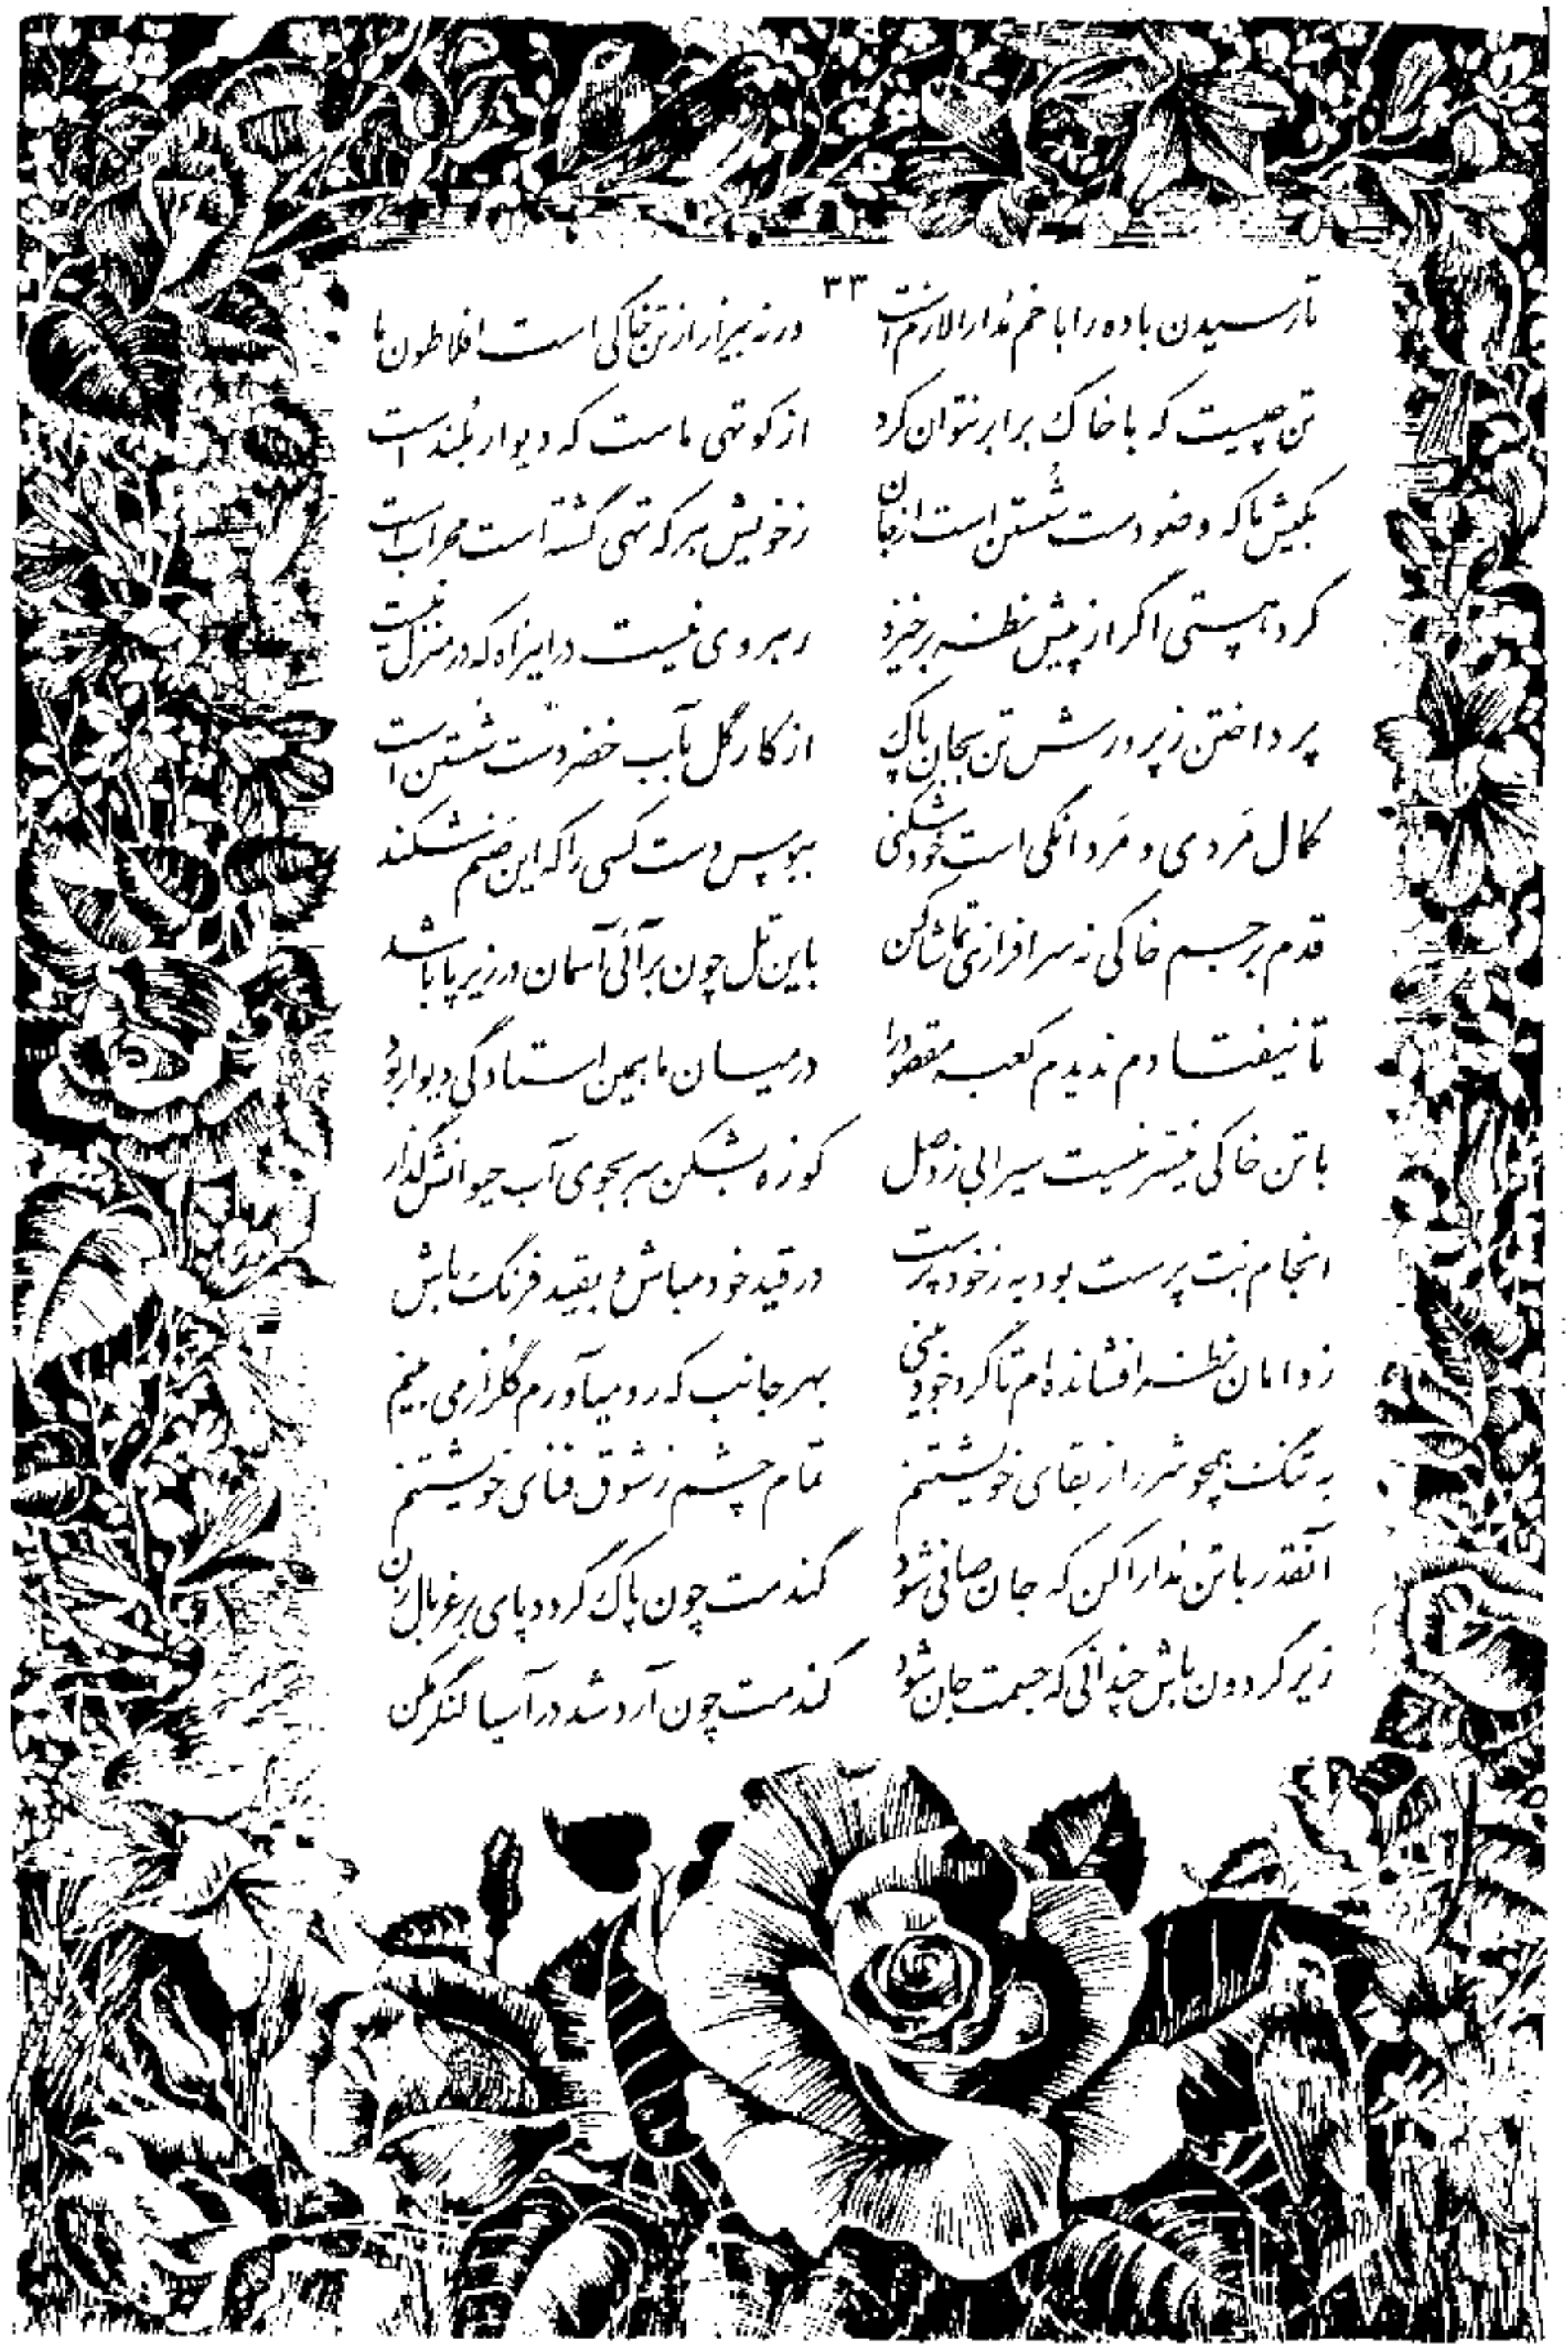 ۳۳
تا رسیدن باده را با خم مُدارا لازم است ورنه بیزار از تن خاکی است افلاطون ما
تن چیست که با خاک برابر نتوان کرد از کوتهی ماست که دیوار بُلند است
بکیش ما که وضو دست شُستن است از جان ز خویش هر که تهی گشته است محراب است
گرد هستی اگر از پیش نظر برخیزد رهروی نیست در این راه که در منزل نیست
پرداختن ز پرورش تن بجان پاک از کار گل بآب خضر دست شُستن است
کمال مَردی و مَردانگی است خود شکنی ببوس دست کسی را که این صَنم شکند
قدم بر جسم خاکی نه سرافرازی تماشا کن باین تَل چون برآئی آسمان در زیر پا باشد
تا نیفتادم ندیدم کعبه مقصود را در میان ما همین استادگی دیوار بود
با تن خاکی میّسر نیست سیرابی ز وصل کوزه بشکن سر بجوی آب حیوانش گذار
انجام بُت پرست بود به ز خود پرست در قید خود مباش و بقید فرنگ باش
ز دامان نظر افشانده‌ام تا گرد خود بینی بهر جانب که رو میآورم گلزار می بینم
به تنگ همچو شرر از بقای خویشتنم تمام چشم ز شوق فنای خویشتنم
آنقدر با تن مُدارا کن که جان صافی شود گندمت چون پاک گردد پای بر غربال زن
زیر گردون باش چندانی که جسمت جان شود گندمت چون آرد شد در آسیا لنگر مکن